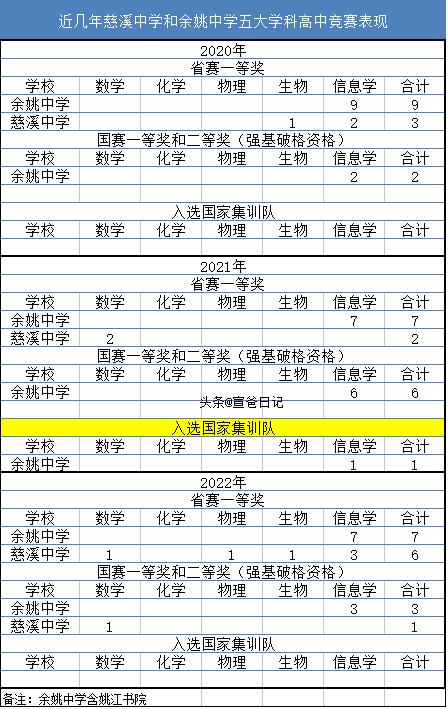 近几年慈溪中学和余姚中学五大学科高中竞赛表现
2020年
省赛一等奖
学校 数学 化学 物理 生物 信息学 合计
余姚中学 9 9
慈溪中学 1 2 3
国赛一等奖和二等奖（强基破格资格）
学校 数学 化学 物理 生物 信息学 合计
余姚中学 2 2
入选国家集训队
学校 数学 化学 物理 生物 信息学 合计
2021年
省赛一等奖
学校 数学 化学 物理 生物 信息学 合计
余姚中学 7 7
慈溪中学 2 2
国赛一等奖和二等奖（强基破格资格）
学校 数学 化学 物理 生物 信息学 合计
余姚中学 6 6
头条@宣爸日记
入选国家集训队
学校 数学 化学 物理 生物 信息学 合计
余姚中学 1 1
2022年
省赛一等奖
学校 数学 化学 物理 生物 信息学 合计
余姚中学 7 7
慈溪中学 1 1 1 3 6
国赛一等奖和二等奖（强基破格资格）
学校 数学 化学 物理 生物 信息学 合计
余姚中学 3 3
慈溪中学 1 1
入选国家集训队
学校 数学 化学 物理 生物 信息学 合计
备注：余姚中学含姚江书院